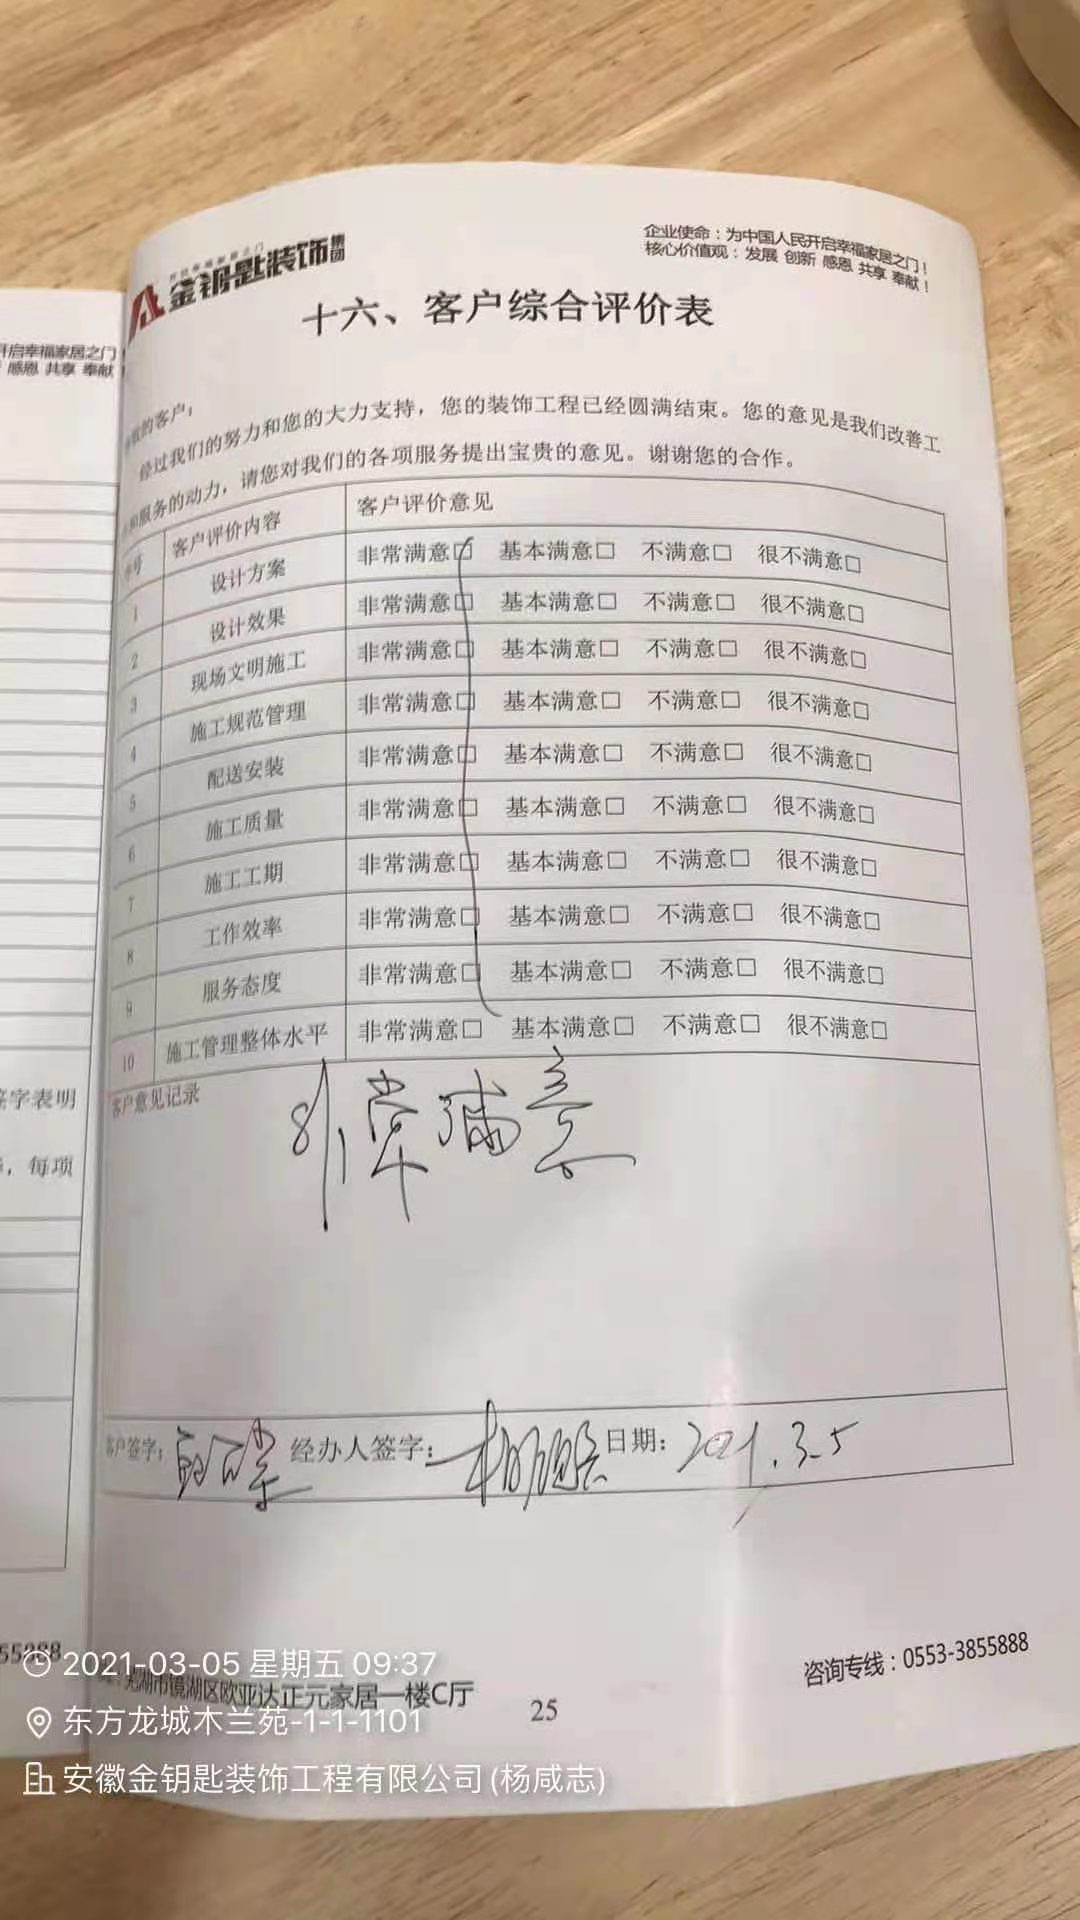 开启幸福家居之门
感恩 共享 奉献
签字表明
每项
金钥匙装饰集团
企业使命：为中国人民开启幸福家居之门！
核心价值观：发展 创新 感恩 共享 奉献！
十六、客户综合评价表
的客户：
经过我们的努力和您的大力支持，您的装饰工程已经圆满结束。您的意见是我们改善工
和服务的动力，请您对我们的各项服务提出宝贵的意见。谢谢您的合作。
号 客户评价内容 客户评价意见
1 设计方案 非常满意□ 基本满意□ 不满意□ 很不满意□
2 设计效果 非常满意□ 基本满意□ 不满意□ 很不满意□
3 现场文明施工 非常满意□ 基本满意□ 不满意□ 很不满意□
4 施工规范管理 非常满意□ 基本满意□ 不满意□ 很不满意□
5 配送安装 非常满意□ 基本满意□ 不满意□ 很不满意□
6 施工质量 非常满意□ 基本满意□ 不满意□ 很不满意□
7 施工工期 非常满意□ 基本满意□ 不满意□ 很不满意□
8 工作效率 非常满意□ 基本满意□ 不满意□ 很不满意□
9 服务态度 非常满意□ 基本满意□ 不满意□ 很不满意□
10 施工管理整体水平 非常满意□ 基本满意□ 不满意□ 很不满意□
客户意见记录
非常满意
客户签字： 经办人签字： 日期：2021.3.5
55888
芜湖市镜湖区欧亚达正元家居一楼C厅
25
咨询专线：0553-3855888
2021-03-05 星期五 09:37
东方龙城木兰苑-1-1-1101
安徽金钥匙装饰工程有限公司(杨咸志)